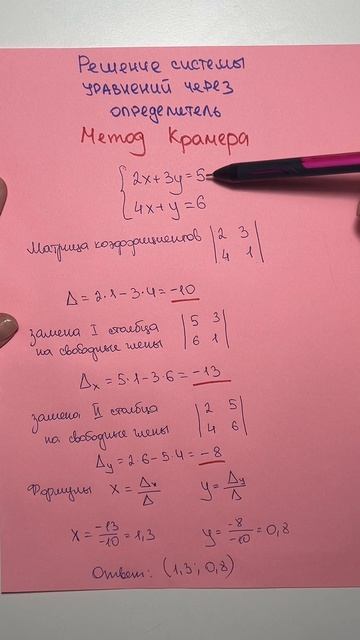 Решение системы
уравнений через
определитель
Метод Крамера
{2x+3y=5
{4x+y=6
Матрица коэффициентов |2 3|
|4 1|
Δ=2·1-3·4=-10
замена I столбца |5 3|
на свободные члены |6 1|
Δx=5·1-3·6=-13
замена II столбца |2 5|
на свободные члены |4 6|
Δy=2·6-5·4=-8
Формулы x=Δx/Δ y=Δy/Δ
x=-13/-10=1,3 y=-8/-10=0,8
Ответ: (1,3; 0,8)